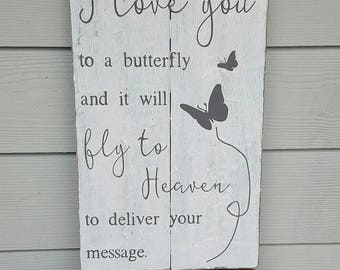 I love you
to a butterfly
and it will
fly to
Heaven
to deliver your
message.